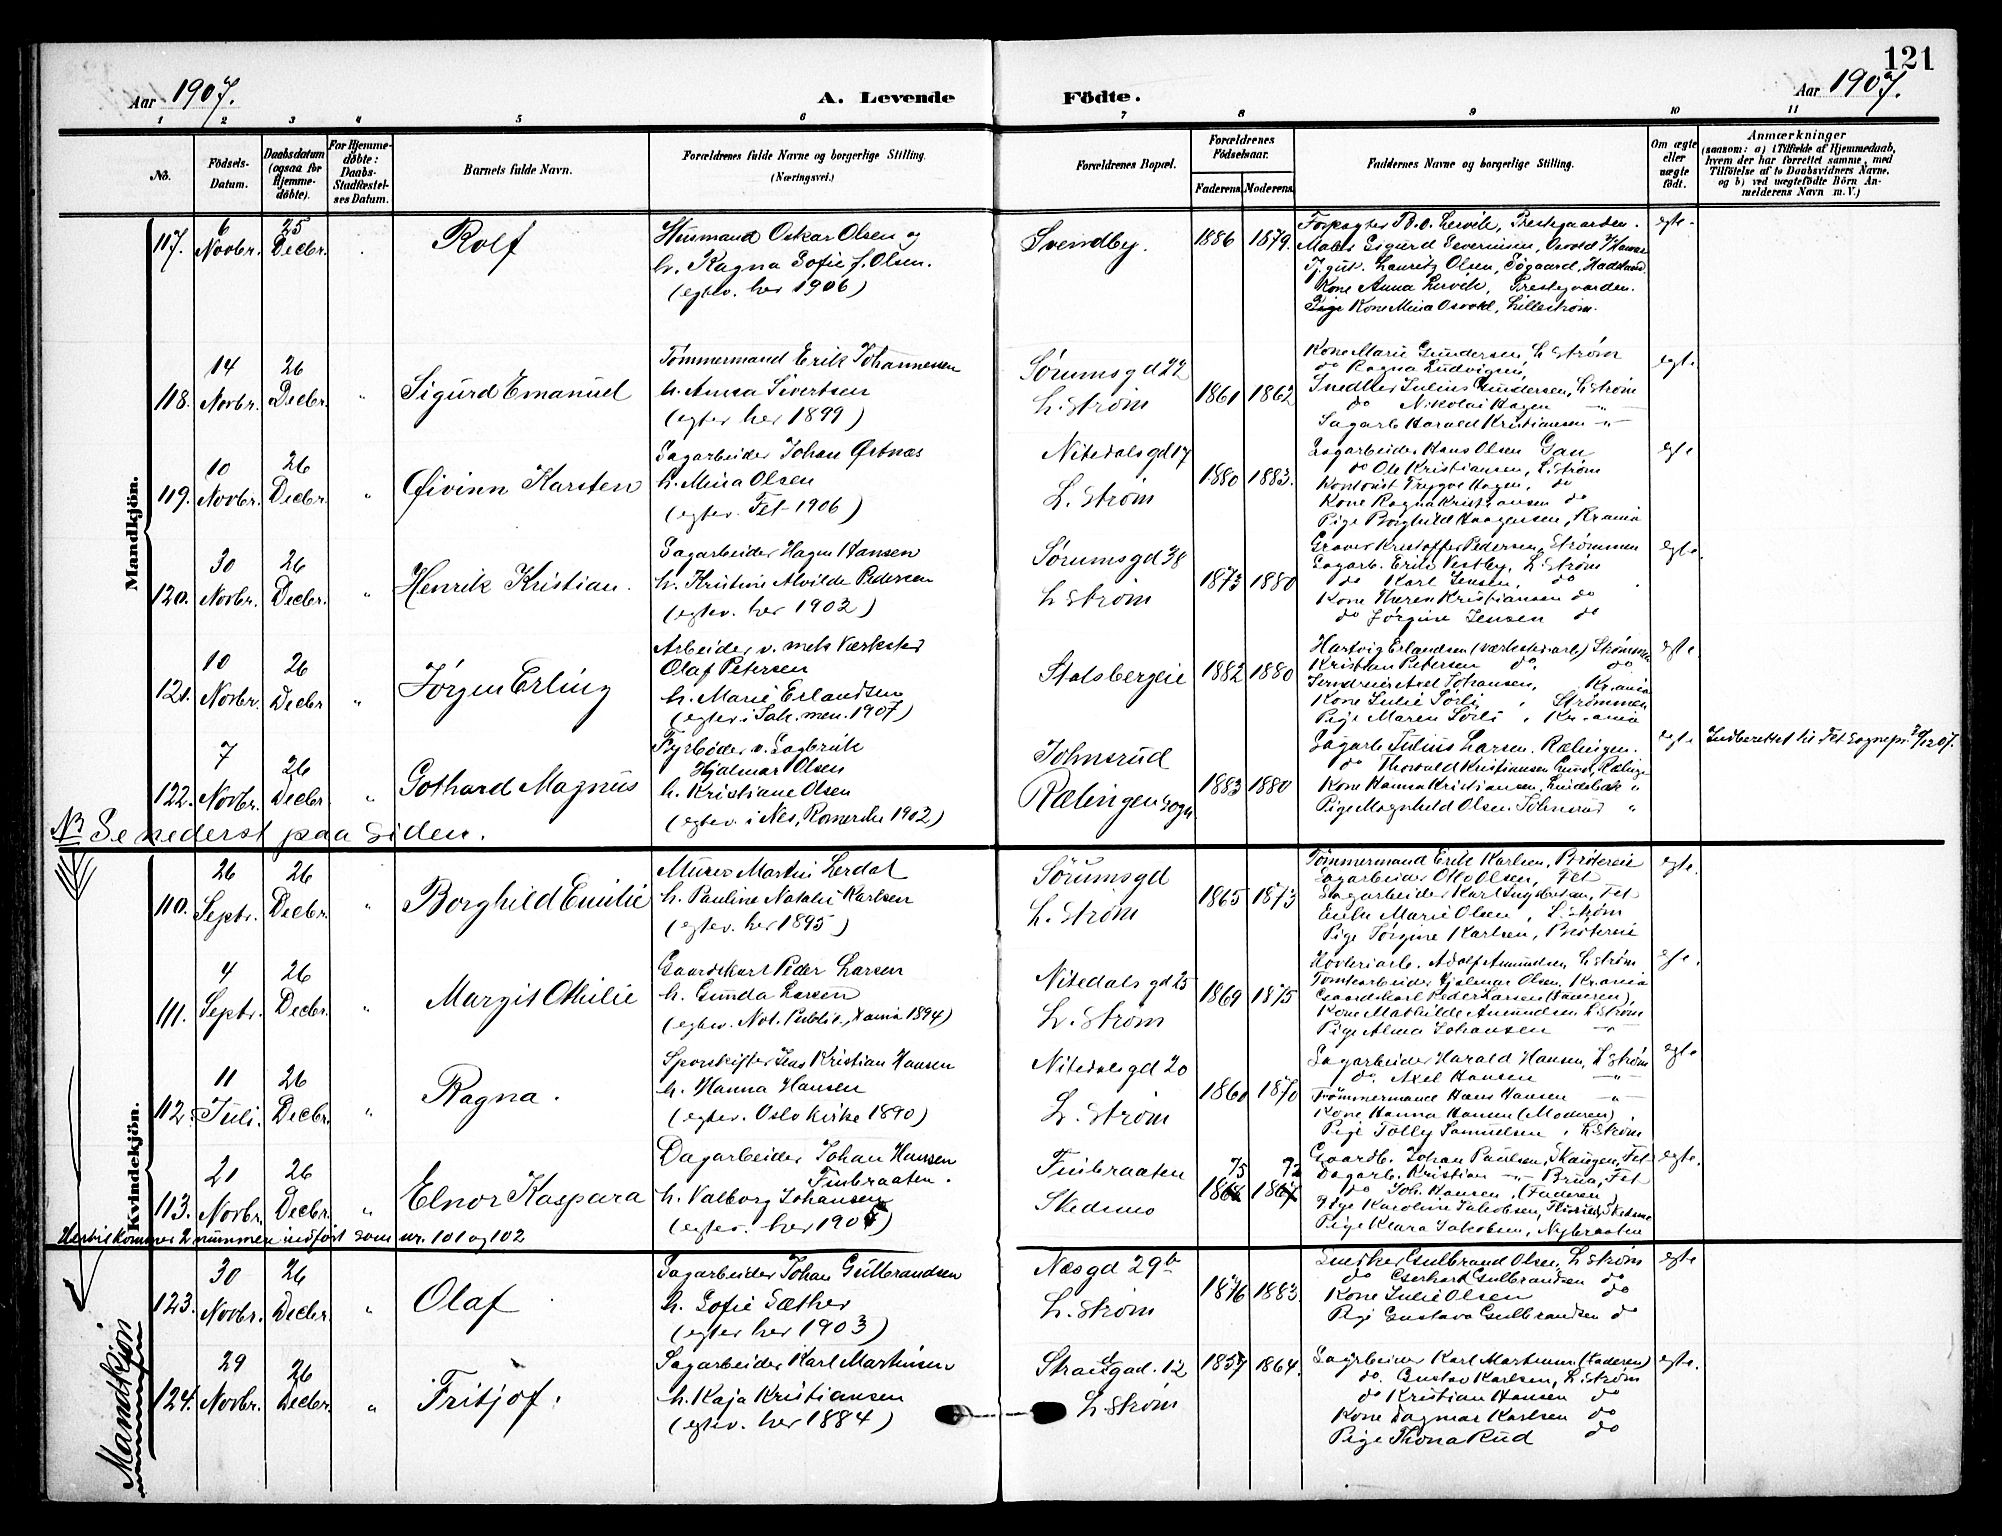 121
Aar 1907.
A. Levende Födte.
Aar 1907.
1 2 3 4 5 6 7 8 9 10 11
No.
Födsels-Datum.
Daabsdatum (ogsaa for Hjemmedöbte).
For Hjemmedöbte: Daabs-Stadfæstelses Datum.
Barnets fulde Navn.
Forældrenes fulde Navne og borgerlige Stilling.
(Næringsvei.)
Forældrenes Bopæl.
Forældrenes Födselsaar.
Faderens Moderens
Faddernes Navne og borgerlige Stilling.
Om ægte eller uægte födt.
Anmærkninger
(saasom: a) i Tilfælde af Hjemmedaab, hvem der har forrettet samme, med Tilföielse af to Daabsvidners Navne, og b) ved uægtefödte Börn Anmelderens Navn m. V.)
Mandkjön.
117. 6 Novbr. 25 Decbr. Rolf
Husmand Oskar Olsen og
h. Ragna Sofie f. Olsen.
(egtev. her 1906)
Svendby. 1886 1879.
Forpagter Lervik, Prestegaarden.
Sigurd Severinsen,
Lauritz Olsen,
Kone Anna Lervik, Prestegaarden.
Kone Mina Osvold, Lillestrøm.
egte.
118. 14 Novbr. 26 Decbr. " Sigurd Emanuel
Tømmermand Erik Johannessen
h. Anna Sivertsen
(egtev her 1899)
Sørumsgd 22
L. Strøm 1861 1862
Kone Marie Gundersen, L Strøm
do Ragna Ludvigsen,
Snedker Julius Gundersen, L. Strøm
do Nikolai Hagen —"—
Sagarb Harald Kristiansen —"—
egte
119. 10 Novbr. 26 Decbr. " Øivinn Karsten
Sagarbeider Johan Østnæs
h. Mina Olsen
(egtev. Fet 1906)
Nitedalsgd 17
L. Strøm 1880 1883.
Sagarbeider Hans Olsen Gan
do Ole Kristiansen, L. Strøm
Kontorist Trygve Hagen, do
Kone Ragna Kristiansen do
Pige Borghild Haagensen, Krania
egte
120. 30 Novbr. 26 Decbr. " Henrik Kristian.
Sagarbeider Hagen Hansen
h. Kristine Alvilde Pedersen
(egtev. her 1902)
Sørumsgd 38
L Strøm 1873 1880
Graver Kristoffer Pedersen, Strømmen
Sagarb. Erik Vestby, L. Strøm
do Karl Jensen, do
Kone Kristiansen do
do Jørgine Jensen do
egte.
121. 10 Novbr. 26 Decbr " Jørgen Erling
Arbeider v. mek Værksted
Olaf Petersen
h. Marie Erlandsen
(egtev i Joh. men. 1907)
Stalsbergeie 1882 1880
Hartvig Erlandsen (værkstedarb) Strømmen
Kristian Petersen do. do
Axel Johansen, Krania
Kone Julie Sørli, Strømmen
Pige Maren Sørli, Krania
egte.
122. 7 Novbr. 26 Decbr " Gothard Magnus
Fyrbøder v. Sagbruk
Hjalmar Olsen
h. Kristiane Olsen
(egtev. i Nes, Romerike 1902)
Johnsrud
Rælingen sogn 1883 1880
Sagarb Julius Larsen. Rælingen.
do Thorvald Kristiansen
Kone Hanna Kristiansen, "
Pige Magnhild Olsen Johnsrud "
egte
Indberettet til Fet Sognepr.
NB Se nederst paa Siden.
Kvindekjön.
110. 26 Septr. 26 Decbr. " Borghild Emilie
Murer Martin Lerdal
h. Pauline Natalie Karlsen
(egtev. her 1895)
Sørumsgd
L. Strøm 1865 1873
Tømmermand Erik Karlsen, Bråtereie
Sagarbeider Otto Olsen, Fet
Sagarbeider Karl Fet
Marie Olsen, L. Strøm
Pige Jørgine Karlsen, Bråtereie
egte.
111. 4 Septr. 26 Decbr. " Margit Othilie
Gaardskarl Peder Larsen
h. Gunda Larsen
(egtev. Not. Public., Xania 1894)
Nitedalsgd 25
L. Strøm 1869 1875
Høvleriarb. Adolf Amundsen L Strøm
Tomtearbeider Hjalmar Olsen, Krania
Gaardskarl Peder Larsen (Faderen),
Kone Mathilde Amundsen L Strøm
Pige Alma Johansen —"—
egte.
112. 11 Juli. 26 Decbr. " Ragna.
Sporskifter Jens Kristian Hansen
h. Hanna Hansen
(egtev. Oslo Kirke 1890)
Nitedalsgd 20
L. Strøm 1860 1870
Sagarbeider Harald Hansen, L Strøm
do. Axel Hansen —"—
Tømmermand Hans Hansen —"—
Kone Hanna Hansen (Moderen).
Pige Tolly Samuelsen, L. Strøm
egte
113. 21 Novbr. 26 Decbr. " Elnor Kaspara
Dagarbeider Johan Hansen
Finbraaten.
h. Valborg Johansen
(egtev. her 190)
Finbraaten
Skedsmo 75 72
Gaardb. Johan Paulsen, Skaugen, Fet
Dagarb. Kristian —"— Brua, Fet
do Joh. Hansen, (Faderen)
Pige Karoline Jakobsen, Skedsmo
Pige Klara Jakobsen, Nybraaten
egte.
Hertil kommer 2 nummer indført som nr. 101 og 102
Mandkjøn
123. 30 Novbr. 26 Decbr. " Olaf
Sagarbeider Johan Gulbrandsen
h. Sofie Sæther
(egtev her 1903)
Næsgd 29b
L. Strøm 1876 1883.
Snedker Gulbrand Olsen, L Strøm
do Gerhard Gulbrandsen do
Kone Julie Olsen do
Pige Gustava Gulbrandsen do
egte
124. 29 Novbr. 26 Decbr. " Fritjof.
Sagarbeider Karl Martinsen
h. Kaja Kristiansen
(egtev. her 1884)
Strandgad. 12
L. Strøm 1857 1864.
Sagarbeider Karl Martinsen (Faderen)
do. Gustav Karlsen, L. Strøm
do Kristian Hansen do
Kone Dagmar Karlsen do
Pige Thona Rud do
egte.